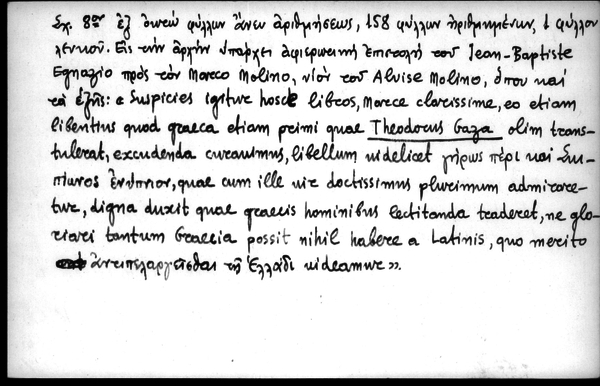 Σχ. 8ον ἐξ ὀκτώ φύλλων ἄνευ ἀριθμήσεως, 158 φύλλων ἠριθμημένων, 1 φύλλου
λευκοῦ. Εἰς τήν ἀρχήν ὑπάρχει ἀφιερωτική ἐπιστολή τοῦ Jean-Baptiste
Egnazio πρός τόν Marco Molino, υἱόν τοῦ Alvise Molino, ὅπου καί
τά ἑξῆς: « Suspicies igitur hosce libros, Marce clarissime, eo etiam
libentius quod graeca etiam primi quae Theodorus Gaza olim trans-
tulerat, excudenda curauimus, libellum uidelicet γήρως πέρι καί Σκι-
πίωνος ἐνύπνιον, quae cum ille uir doctissimus plurimum admirare-
tur, digna duxit quae graecis hominibus lectitanda traderet, ne glo-
riari tantum Graecia possit nihil habere a Latinis, quo merito
ἀντιπελαργεῖσθαι τῇ Ἑλλάδι uideamur ».